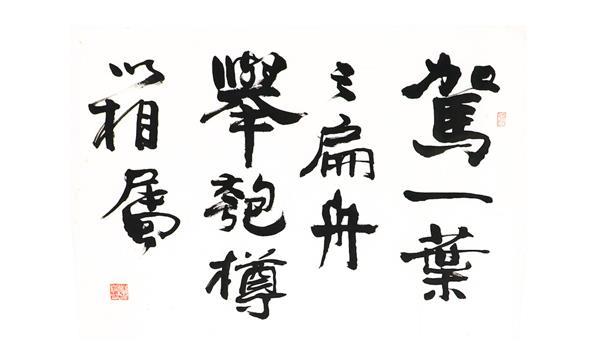 駕一葉
之扁舟
舉匏樽
以相属